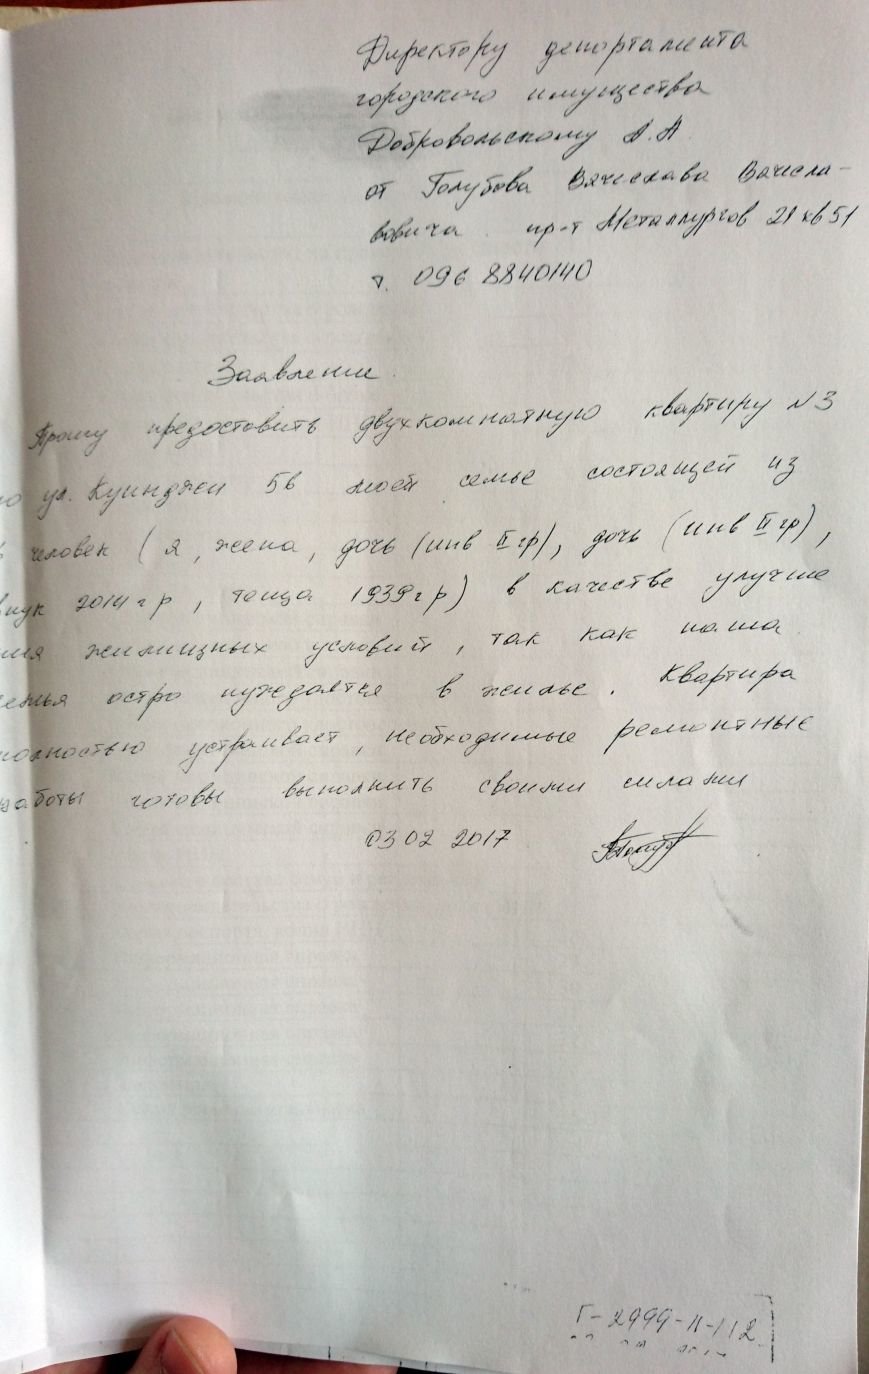 Директору депортамента
городского имущества
Добровольскому А.А.
от Голубова Вячеслава Вачесла-
вовича пр-т Металлургов 21 кв 51
т. 096 8840140
Заявление.
Прошу предоставить двухкомнатную квартиру №3
по ул. Куинджи 5в моей семье состоящей из
человек (я, жена, дочь (инв II гр), дочь (инв II гр),
внук 2014 г р, теща 1939 г р) в качестве улучше
ния жилищных условий, так как наша
семья остро нуждается в жилье. Квартира
полностью устраивает, необходимые ремонтные
работы готовы выполнить своими силами
03 02 2017
Г-2999-II-112